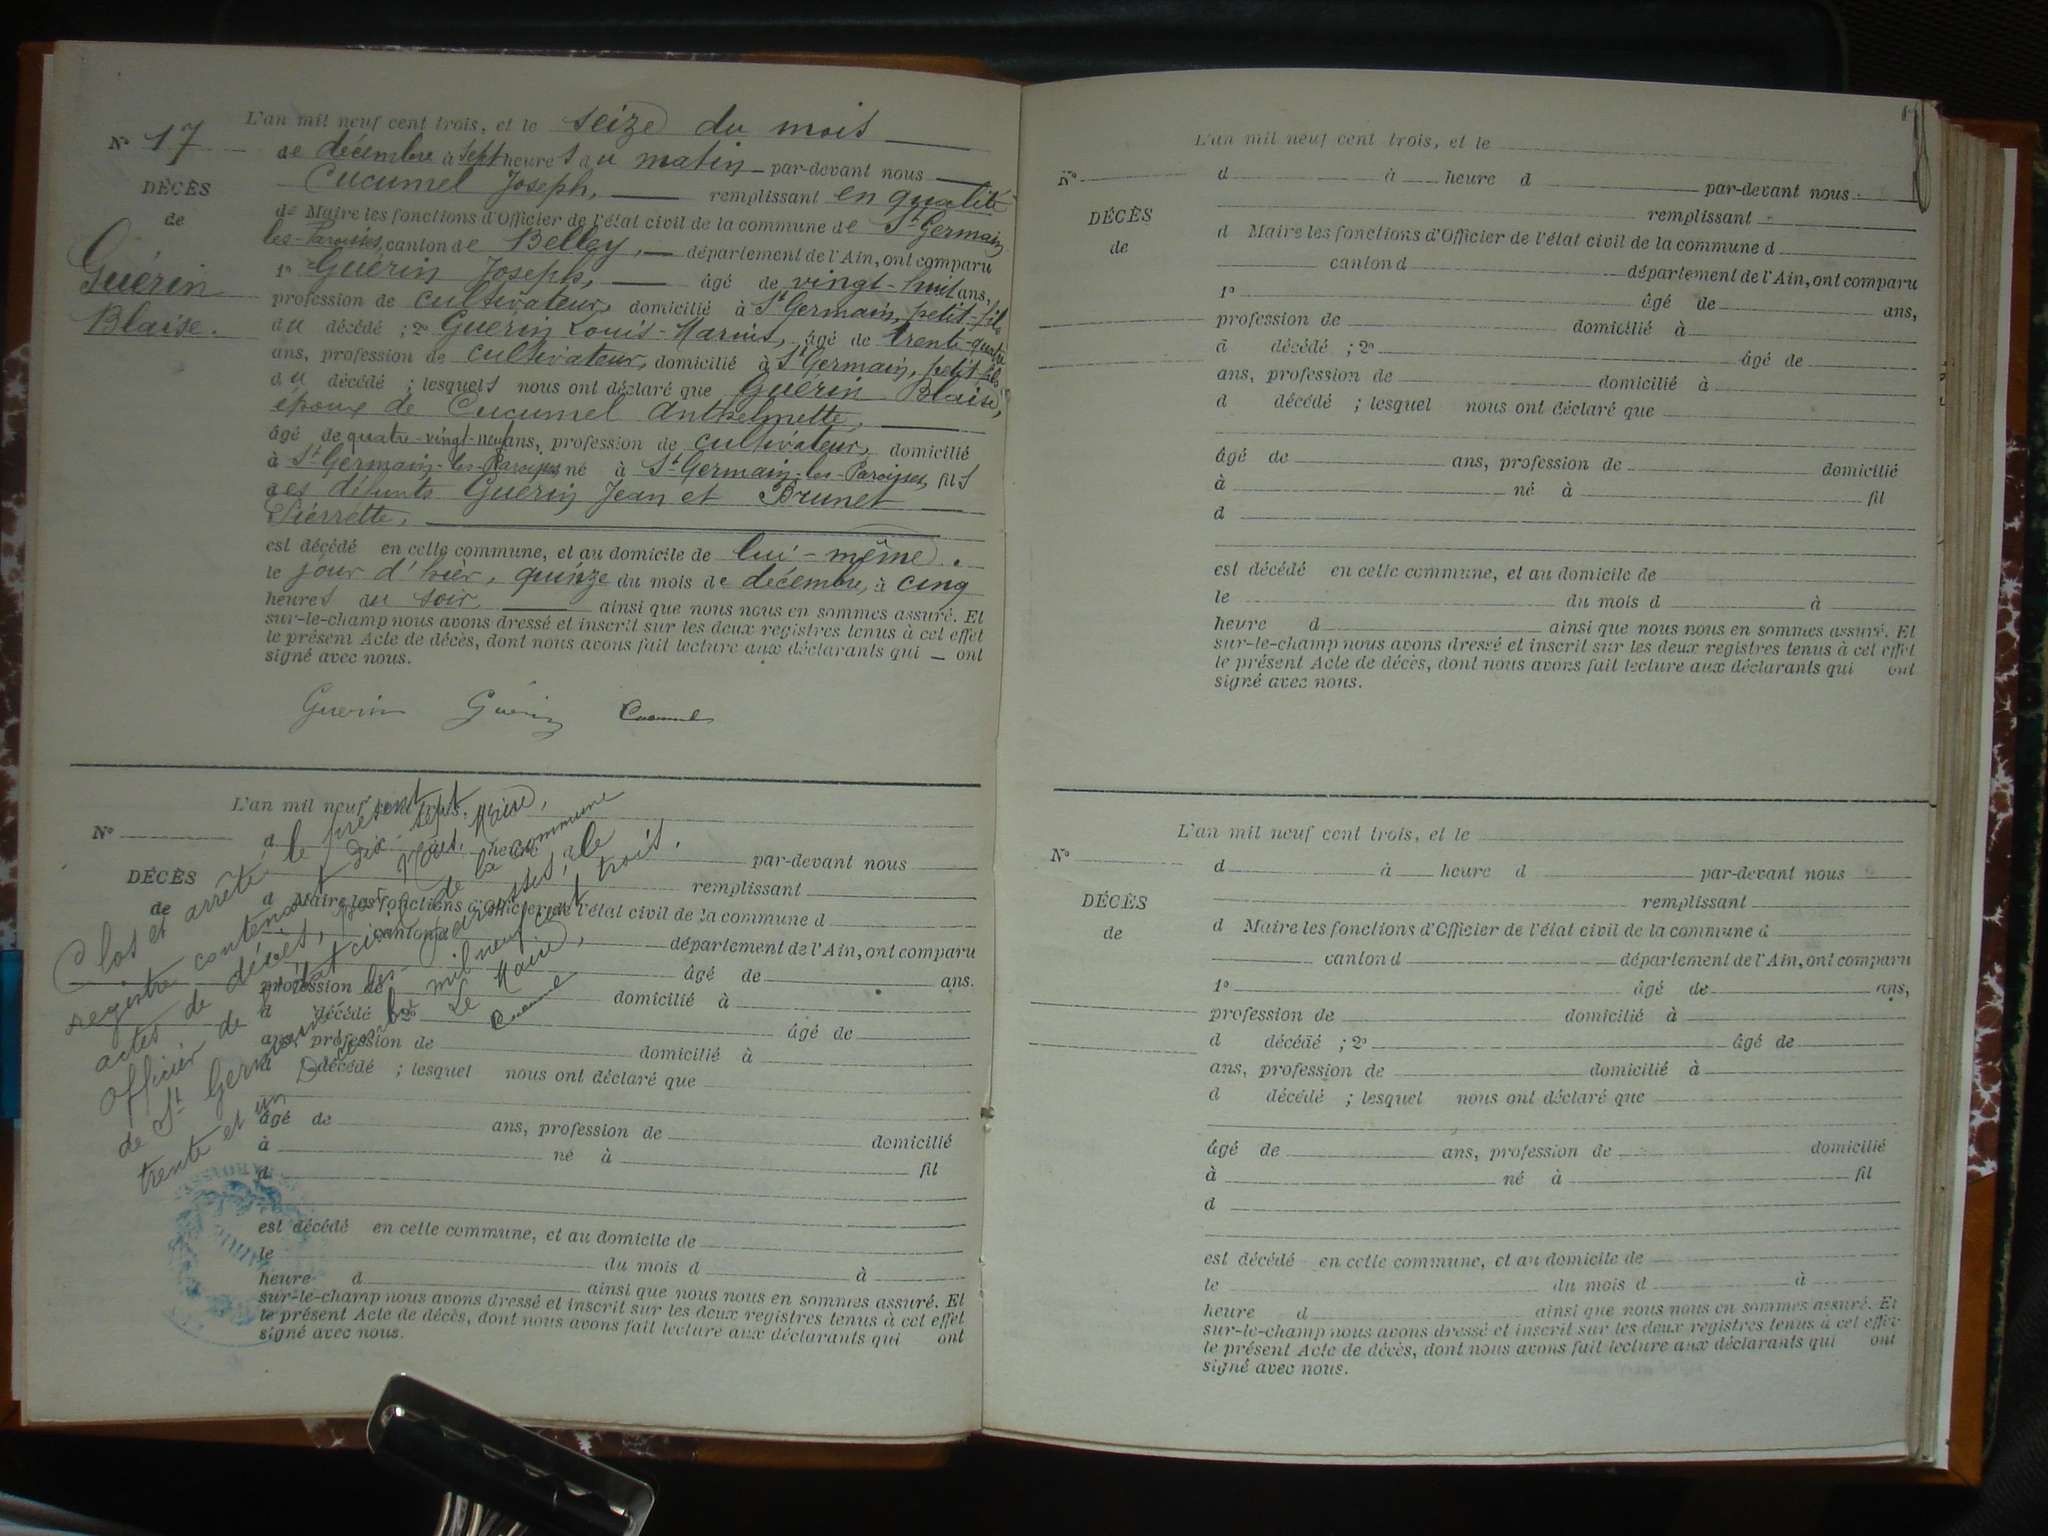 L'an mil neuf cent trois, et le seize du mois
N° 17
de décembre à sept heures du matin par-devant nous
DÉCÈS
Cucumel Joseph, remplissant en qualité
de
de Maire les fonctions d'Officier de l'état civil de la commune de St Germain
les-Paroisses, canton de Belley, département de l'Ain, ont comparu
Guérin
Blaise.
1° Guérin Joseph, âgé de vingt-huit ans,
profession de cultivateur, domicilié à St Germain, petit-fils
du décédé ; 2° Guérin Louis-Marius, âgé de trente-quatre
ans, profession de cultivateur, domicilié à St Germain, petit-fils
du décédé ; lesquels nous ont déclaré que Guérin Blaise,
époux de Cucumel Anthelmette,
âgé de quatre-vingt-neuf ans, profession de cultivateur, domicilié
à St Germain-les-Paroisses, né à St Germain-les-Paroisses, fils
des défunts Guérin Jean et Brunet
Pierrette,
est décédé en cette commune, et au domicile de lui-même.
le jour d'hier, quinze du mois de décembre, à cinq
heures du soir ainsi que nous nous en sommes assuré. Et
sur-le-champ nous avons dressé et inscrit sur les deux registres tenus à cet effet
le présent Acte de décès, dont nous avons fait lecture aux déclarants qui ont
signé avec nous.
Guerin Guérin Cucumel
L'an mil neuf cent trois,
N°
d heure
par-devant nous
DÉCÈS
remplissant
de
d Maire les fonctions d'Officier de l'état civil de la commune d
canton d département de l'Ain, ont comparu
âgé de ans.
profession de domicilié à
d décédé 2° âgé de
ans, profession de domicilié à
d décédé ; lesquel nous ont déclaré que
âgé de ans, profession de domicilié
à né à fil
d
est décédé en cette commune, et au domicile de
le du mois d à
heure d ainsi que nous nous en sommes assuré. Et
sur-le-champ nous avons dressé et inscrit sur les deux registres tenus à cet effet
le présent Acte de décès, dont nous avons fait lecture aux déclarants qui ont
signé avec nous.
Clos et arrêté le présent
registre contenant dix-sept
actes de décès, par Nous, Maire,
officier de l'état civil de la commune
de St Germain-les-Paroisses, le
trente et un Décembre mil neuf cent trois.
Le Maire,
Cucumel
L'an mil neuf cent trois, et le
N°
d à heure d par-devant nous
DÉCÈS
remplissant
de
d Maire les fonctions d'Officier de l'état civil de la commune d
canton d département de l'Ain, ont comparu
1° âgé de ans,
profession de domicilié à
d décédé ; 2° âgé de
ans, profession de domicilié à
d décédé ; lesquel nous ont déclaré que
âgé de ans, profession de domicilié
à né à fil
d
est décédé en cette commune, et au domicile de
le du mois d à
heure d ainsi que nous nous en sommes assuré. Et
sur-le-champ nous avons dressé et inscrit sur les deux registres tenus à cet effet
le présent Acte de décès, dont nous avons fait lecture aux déclarants qui ont
signé avec nous.
L'an mil neuf cent trois, et le
N°
d à heure d par-devant nous
DÉCÈS
remplissant
de
d Maire les fonctions d'Officier de l'état civil de la commune d
canton d département de l'Ain, ont comparu
1° âgé de ans,
profession de domicilié à
d décédé ; 2° âgé de
ans, profession de domicilié à
d décédé ; lesquel nous ont déclaré que
âgé de ans, profession de domicilié
à né à fil
d
est décédé en cette commune, et au domicile de
le du mois d à
heure d ainsi que nous nous en sommes assuré. Et
sur-le-champ nous avons dressé et inscrit sur les deux registres tenus à cet effet
le présent Acte de décès, dont nous avons fait lecture aux déclarants qui ont
signé avec nous.